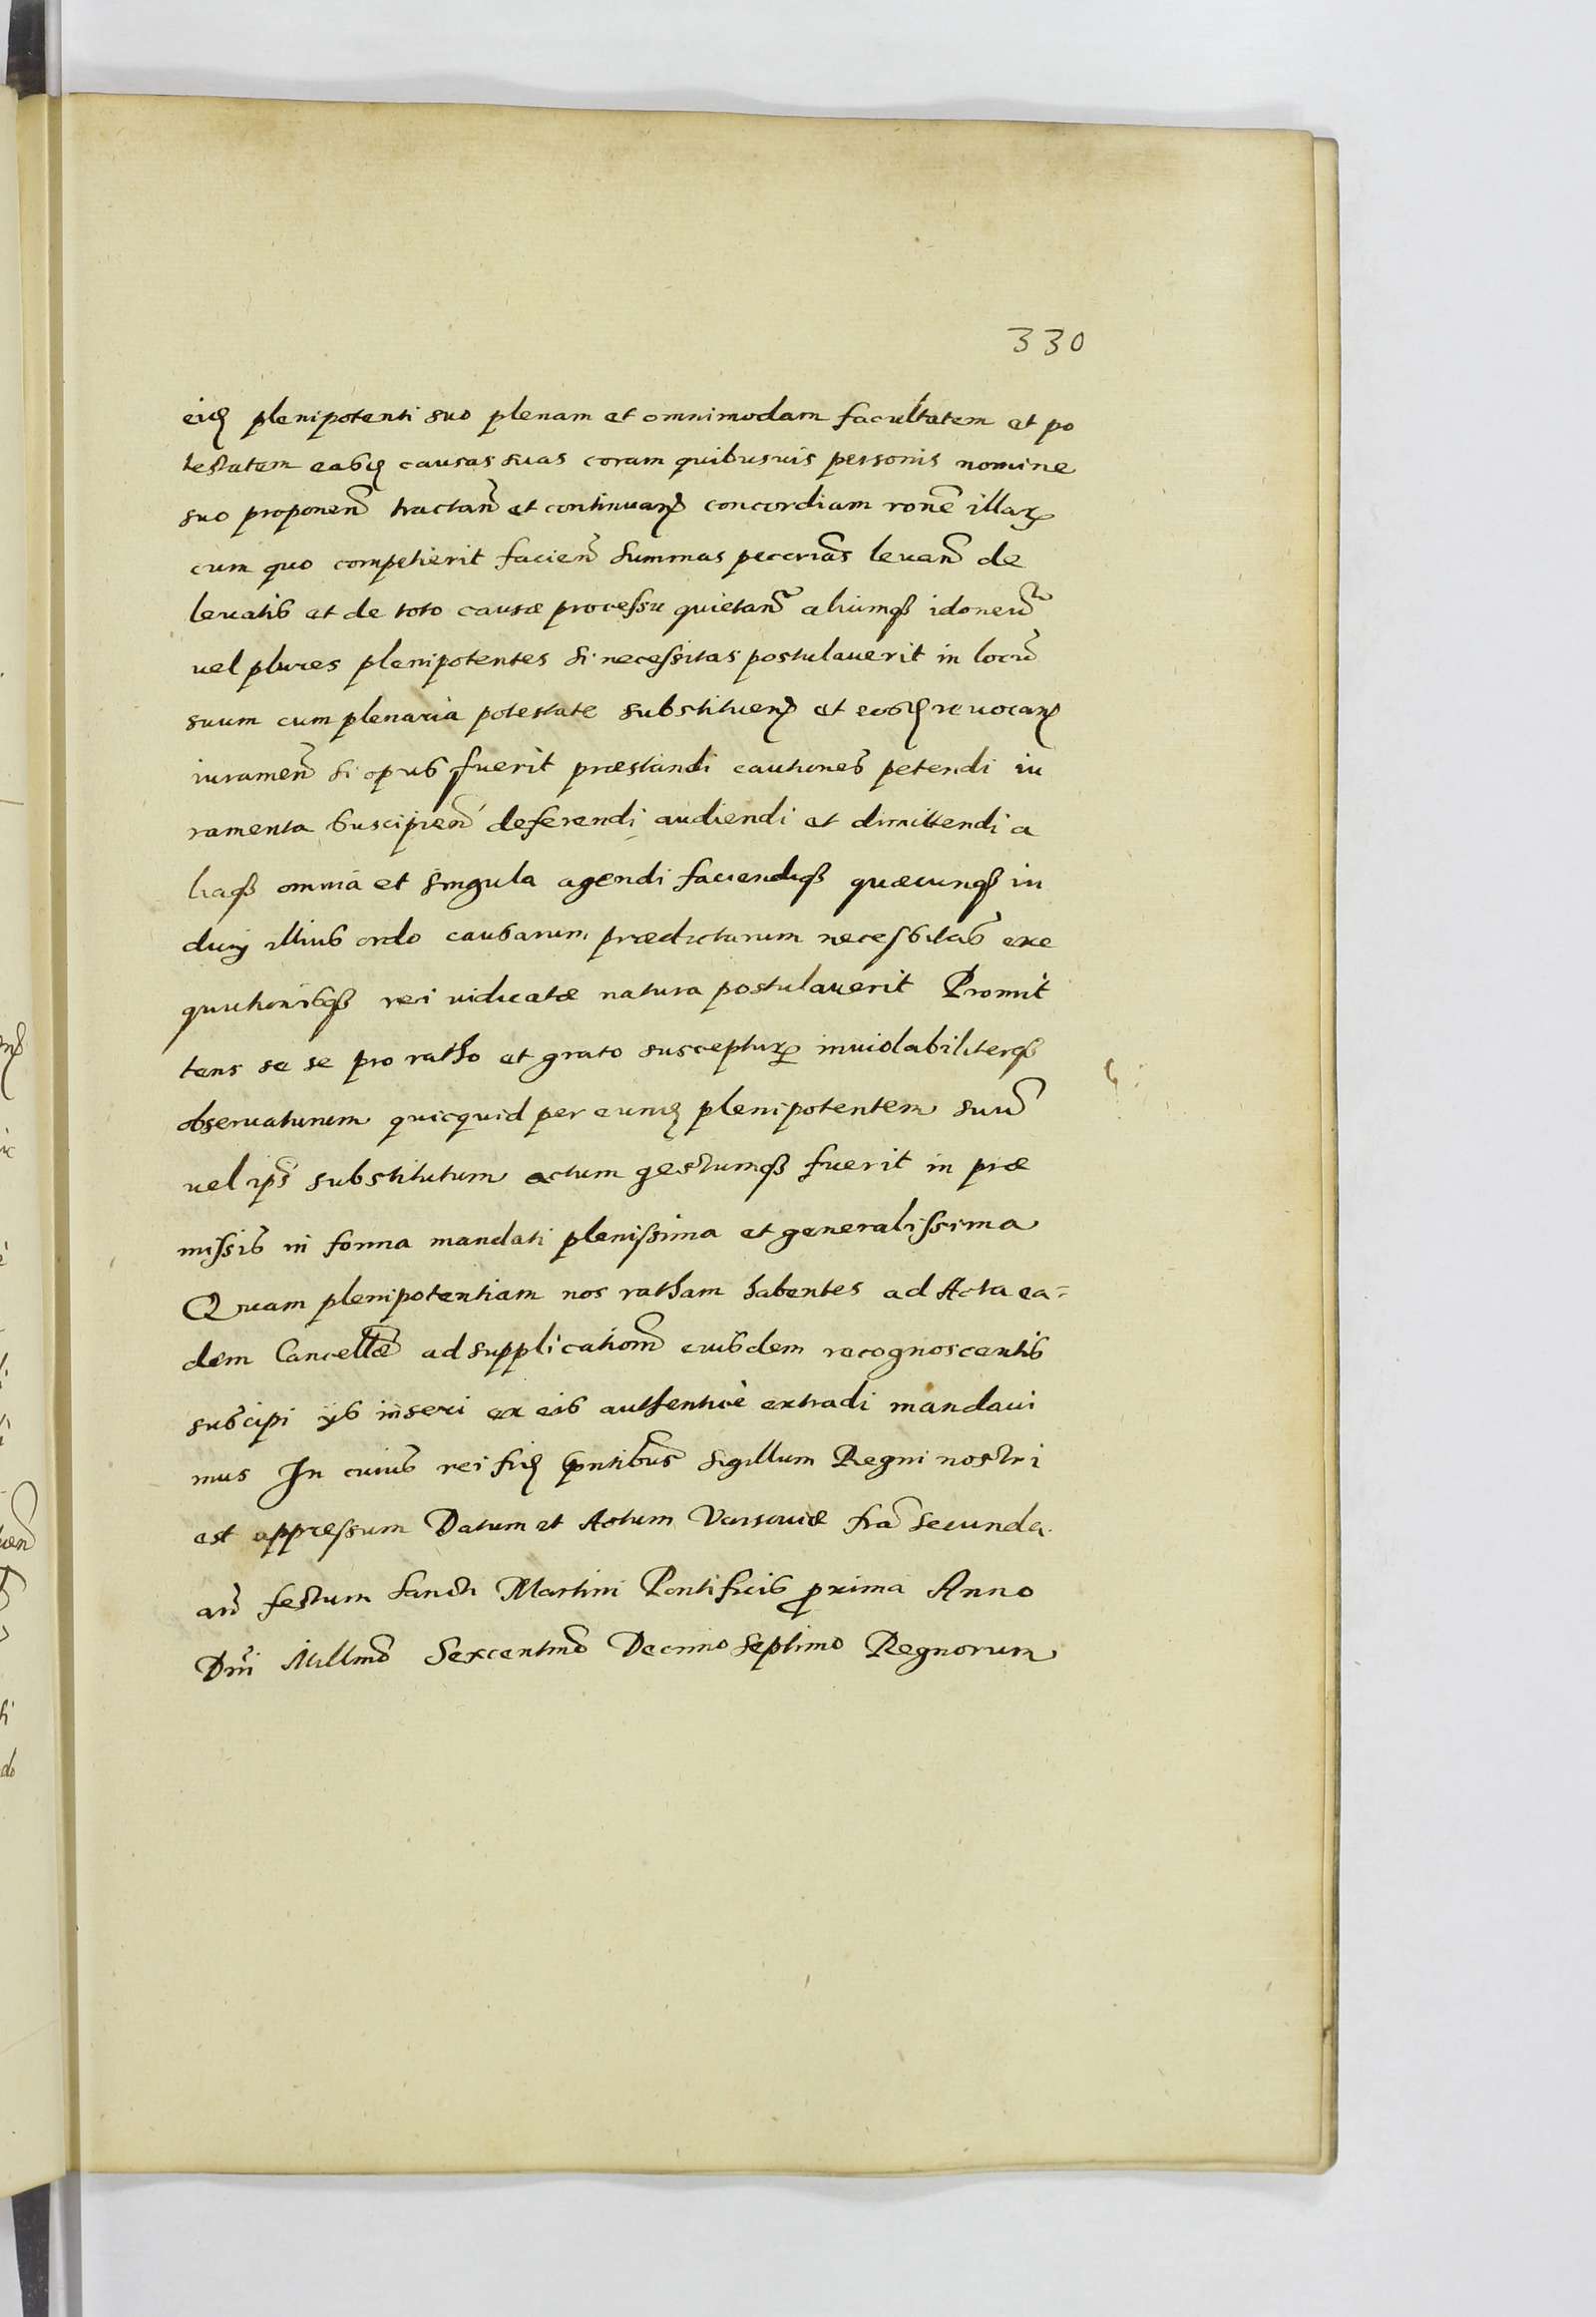 330
eid plenipotenti suo plenam et omnimodam facultatem et po
testatem easd causas suas coram quibusuis personis nomine
suo proponen̄ tractan̄ et continuan̄ concordiam rone͂ illarꝝ
cum quo competierit facien̄ summas peccrias leuan̄ de
leuatis et de toto causæ processu quietan̄ aliumqꝫ idoneu͂
uel plures plenipotentes si necessitas postulauerit in locu͂
suum cum plenaria potestate substituen̄ et eosd reuocan̄
iuramen̄ si opus fuerit præstandi cautiones petendi iu
ramenta suscipien̄ deferendi audiendi et dimittendi a
liaqꝫ omnia et singula agendi faciendiqꝫ quæcunqꝫ iu
dicij illius ordo causarum prædictarum necessitas exe
quutionisqꝫ rei iudicatæ natura postulauerit Promit
tens se se pro ratho et grato suscepturꝝ inuiolabiliterqꝫ
obseruaturum quicquid per eund plenipotentem suu͂
uel ips͂ substitutum actum gestumqꝫ fuerit in præ
missis in forma mandati plenissima et generalissima
Quam plenipotentiam nos ratham habentes ad Acta ea=
dem Cancellæ ad supplicatiom͂ eiusdem recognoscentis
suscipi ijs inseri ex eis authenticè extradi mandaui
mus In cuius rei fid pntibus Sigillum Regni nostri
est appressum Datum et Actum Varsauiæ fra͂ secunda
an͂ festum Sancti Martini Pontificis ꝓxima Anno
Dni͂ Millmo͂ Sexcentmo͂ Decimo Septimo Regnorum